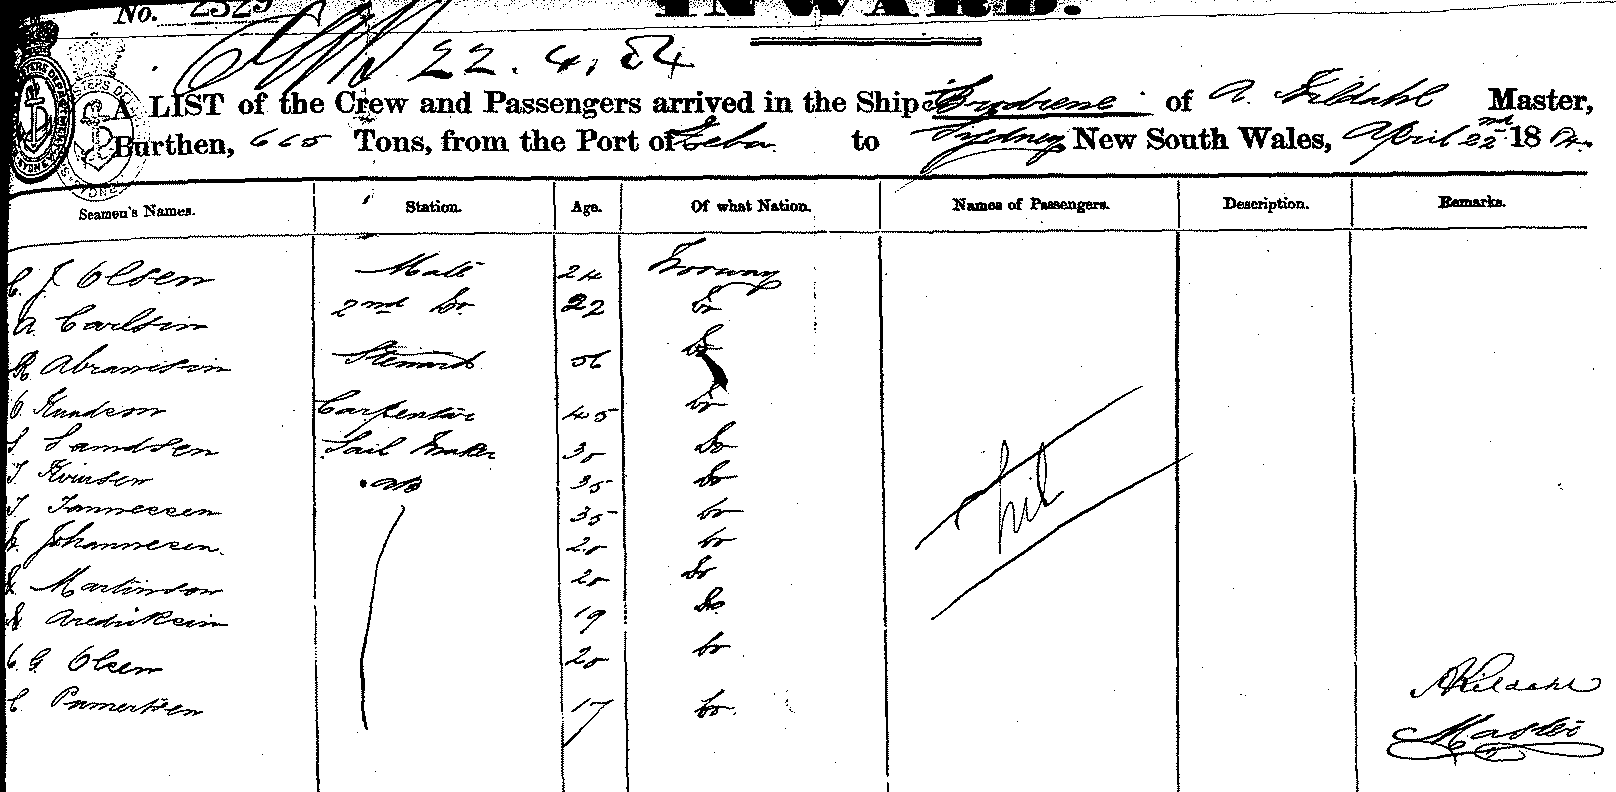 No. 2329
INWARD.
22.4.84
A LIST of the Crew and Passengers arrived in the Ship of A. Kildahl Master,
Burthen, 665 Tons, from the Port of to Sydney New South Wales, April 22nd 1884
Seamen's Names. Station. Age. Of what Nation. Names of Passengers. Description. Remarks.
C. J. Olsen Mate 24 Norway
A. Carlsin 2nd Do. 22 Do
R. Abramsin Steward 56 Do
Knudson Carpenter 45 Do
Samdsen Sail Maker 30 Do
T. AB 35 Do
T. Tannessen 35 Do
Johannesen. 20 Do
Martinson 20 Do
Aredriksin 19 Do
C. G. Olsen 20 Do
C. 17 Do.
Nil
A Kildahl
Master